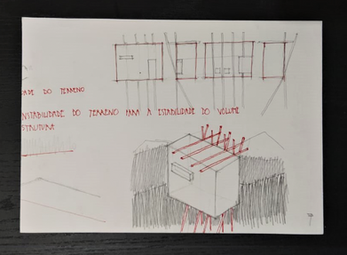 ADE DO TERRENO
NSTABILIDADE DO TERRENO PARA A ESTABILIDADE DO VOLUME
STRUTURA